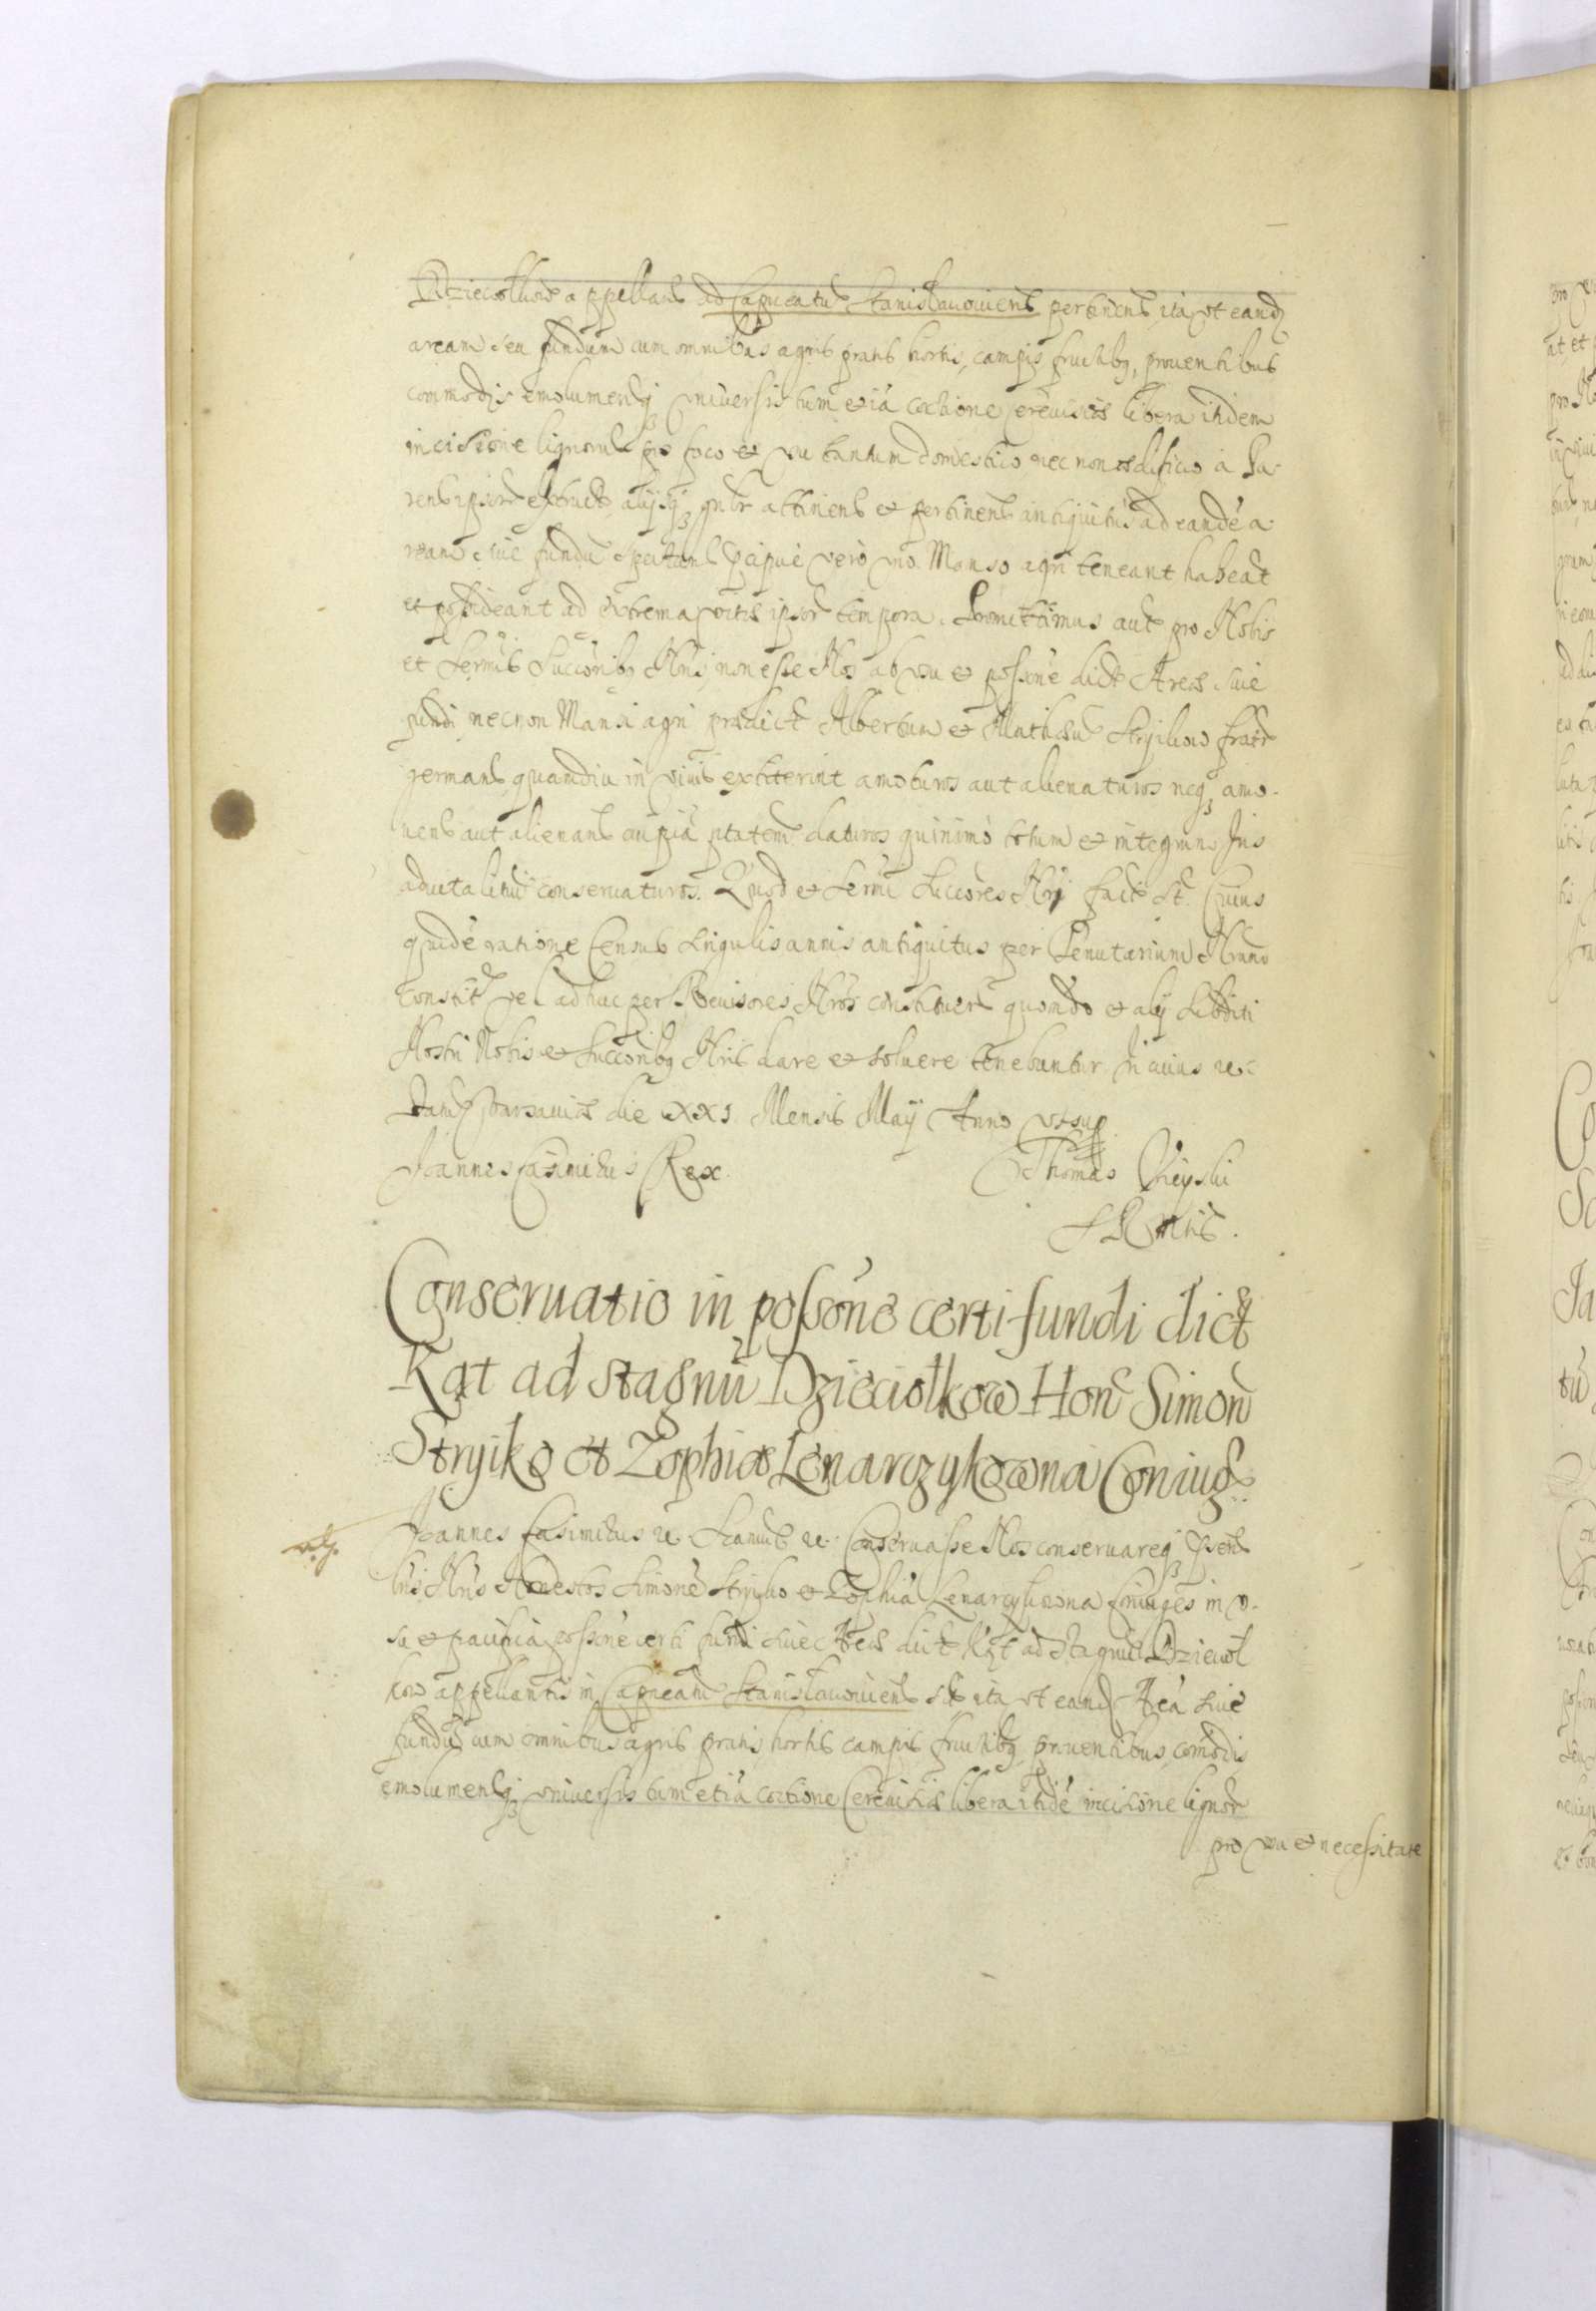 Dzieciołkow appellans ad Capneatu Stanislauouiens pertinens, ita vt eand
aream seu fundum cum omnibus agris pratis hortis, campis fructibq, prouentibus
commodis emolumentq vniuersis tum etiá coctione cereuisiæ libera itidem
incisione lignorum pro foco et vsu tantum domestico nec non ædificio à Pa-
rent ipsor extruct, alijsq gnlr attinens et pertinens antiquitus ad eandé a-
ream siue fundu spectans pcipuè verò vno Manso agri teneant habeat
et possideant ad extrema vitæ ipsor tempora. Promittimus aut pro Nobis
et Sermis Succoribq Nris, non esse Nos ab vsu et possione dict Areæ siue
fundi necnon Mansi agri prædict Albertum et Mathæu Stryikow fratr
germans quamdiu in viuis extiterint amoturos aut alienaturos neq amo-
uens aut alienans cuipiá ptatem daturos quinimò totum et integrum Jus
aduitalitiu conseruaturos. Quod et Sermi Succores Nri fact st. Cuius
quidé ratione Census singulis annis antiquitus per Tenutarium Nrum
constit vel adhuc per Reuisores Nros constituens quomodo et alij Subditi
Nostri Nobis et Succoribq Nris dare et soluere tenebuntur In cuius rei
Datu Varsauiæ die XXI Mensis Maij Anno vt sup
Joannes Casimirus Rex. Thomas Vieyski
S R Mtis.
Conseruatio in possone certi fundi dict
Kąt ad stagnu Dzieciolkow Hon Simon
Stryiko et Zophiæ Lenarczykowna Coniug
Joannes Casimirus Significamus Conseruasse Nos conseruareq psent
lris Nris Honestos Simoné Stryiko et Zophiá Lenarczykowna Coniuges in v-
su et pacifica possione certi fundi siue Areæ dict Kąt ad stagnu Dzieciol
kow appellantis in Capneam Stanislauouiens sit ita vt eand Areá siue
fundu cum omnibus agris pratis hortis campis fructibq, prouentibus, comodis
emolumentq vniuersis tum etiá coctione Cereuisiæ libera itidé incisione lignor
pro vsu et necessitate